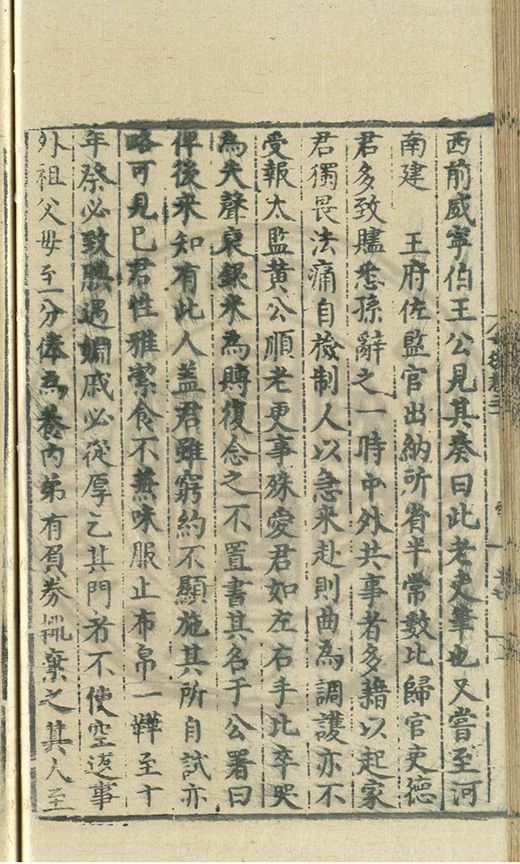 西前威寧伯王公見其奏曰此老吏筆也又嘗至河
南建　王府佐監官出納所省半常數比歸官吏德
君多致贐悉孫辭之一時中外共事者多藉以起家
君獨畏法痛自檢制人以急来赴則曲為調護亦不
受報太監黄公順老更事殊愛君如左右手比卒哭
為失聲裒銀米為賻復念之不置書其名于公署曰
俾後来知有此人盖君雖窮約不顯施其所自試亦
略可見已君性雅潔食不兼味服止布帛一鞾至十
年祭必致腆遇婣戚必從厚乞其門者不使空返事
外祖父母至分俸為養内弟有負券輒棄之其人至